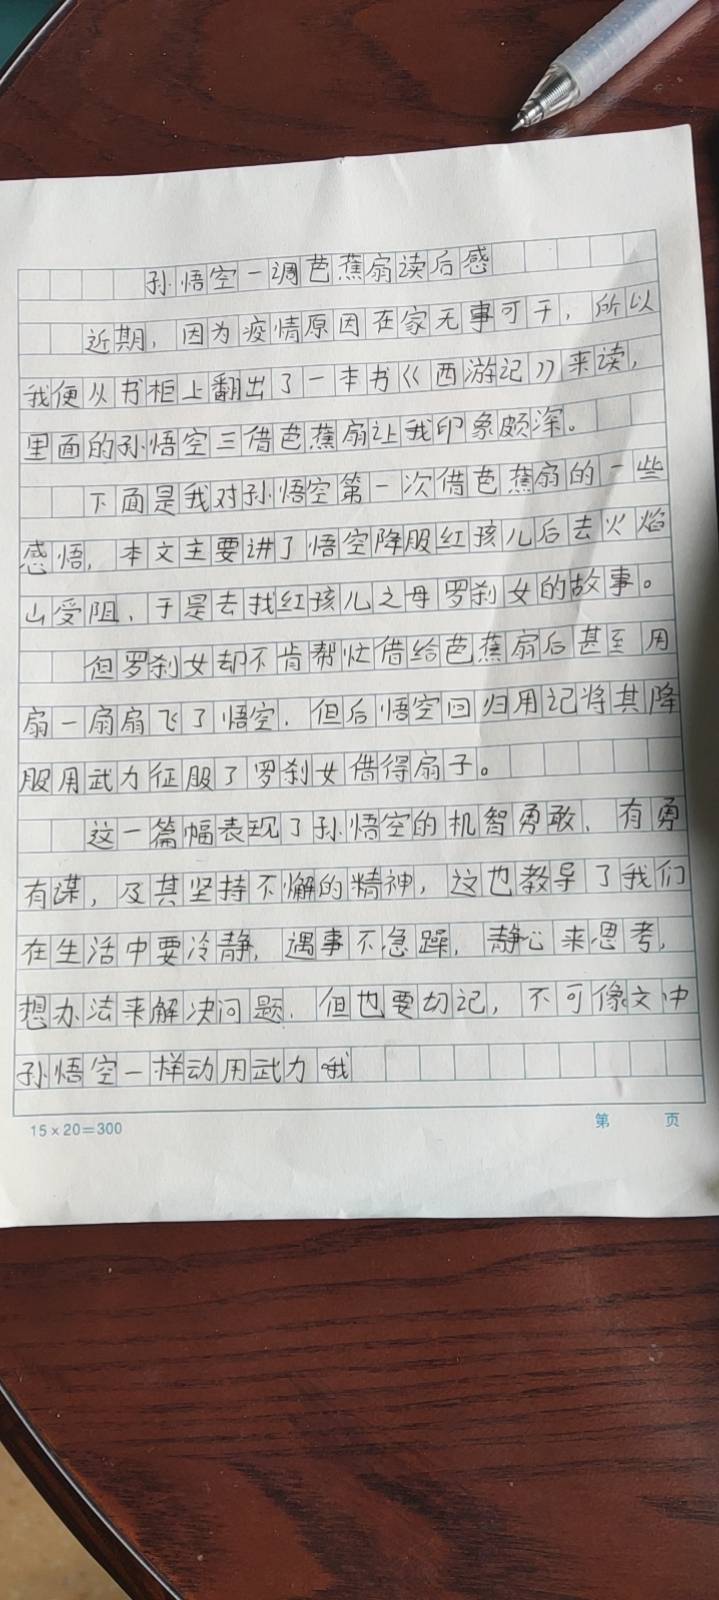 孙悟空一调芭蕉扇读后感
近期，因为疫情原因在家无事可干，所以
我便从书柜上翻出了一本书《西游记》来读，
里面的孙悟空三借芭蕉扇让我印象颇深。
下面是我对孙悟空第一次借芭蕉扇的一些
感悟，本文主要讲了悟空降服红孩儿后去火焰
山受阻，于是去找红孩儿之母罗刹女的故事。
但罗刹女却不肯帮忙借给芭蕉扇后甚至用
扇一扇扇飞了悟空，但后悟空回归用记将其降
服用武力征服了罗刹女借得扇子。
这一篇幅表现了孙悟空的机智勇敢，有勇
有谋，及其坚持不懈的精神，这也教导了我们
在生活中要冷静，遇事不急躁，静心来思考，
想办法来解决问题，但也要切记，不可像文中
孙悟空一样动用武力哦
15×20=300
第 页